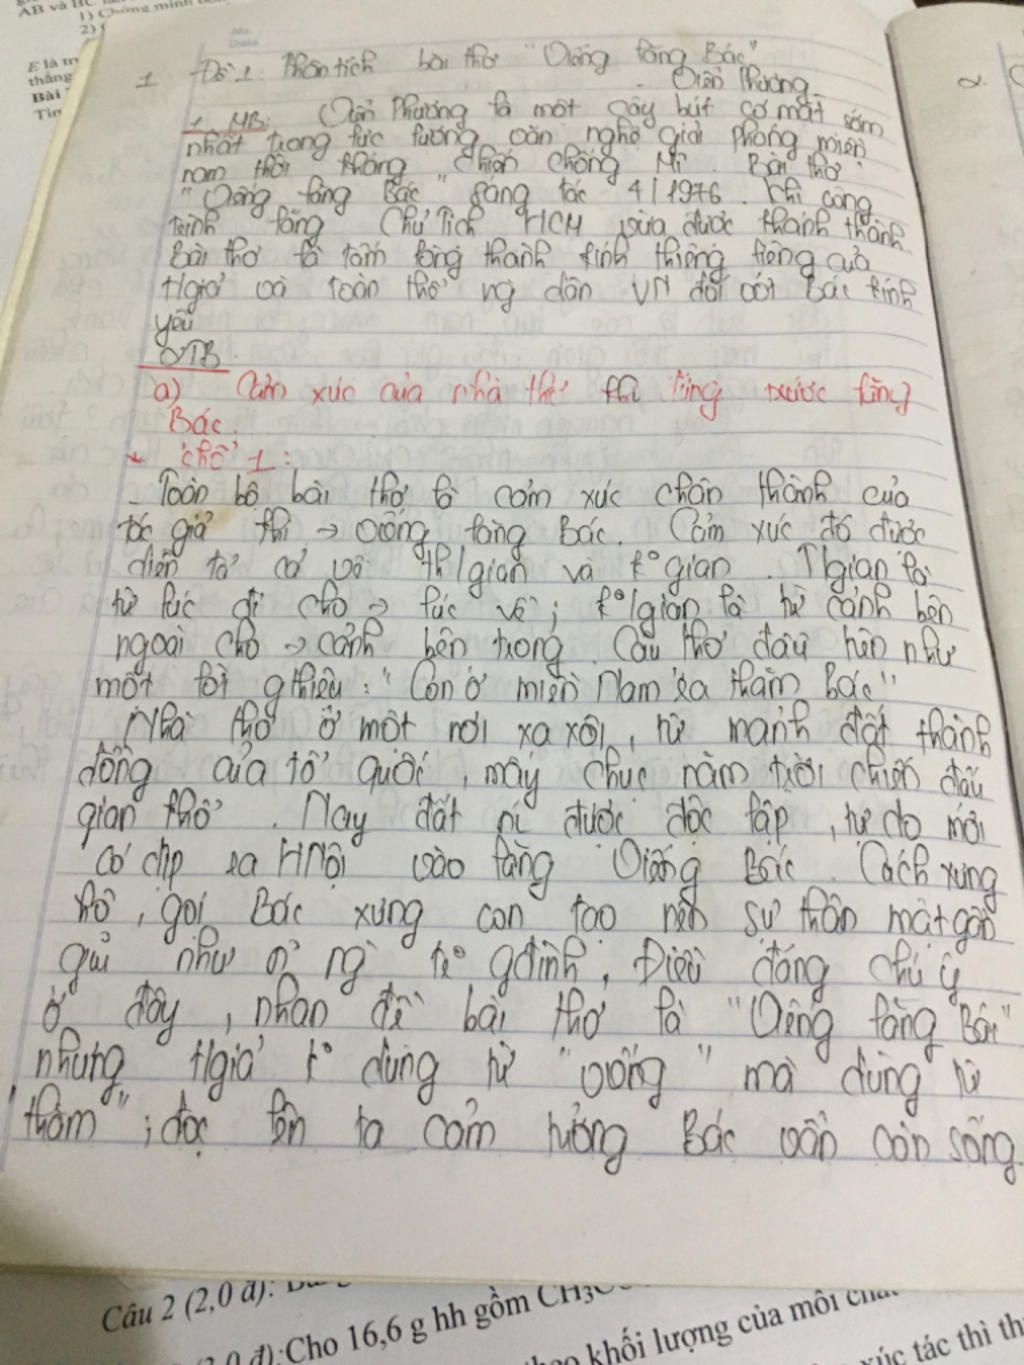 AB và BC
1) Chứng minh
2)
E là
thẳng
Bài
No.
Date
1 Đề 1: Phân tích bài thơ "Viếng lăng Bác"
Viễn Phương
1. MB: Viễn Phương là một cây bút có mặt sớm
nhất trong lực lượng văn nghệ giải phóng miền
nam thời kháng chiến chống Mĩ. Bài thơ
"Viếng lăng Bác" sáng tác 4/1976. Khi công
trình lăng Chủ Tịch HCM vừa được thành
Bài thơ là tấm lòng thành kính thiêng liêng của
t/giả và toàn thể ng dân VN đối với Bác kính
yêu
TB.
a) Cảm xúc của nhà thơ khi đứng trước lăng
Bác.
* khổ 1:
- Toàn bộ bài thơ là cảm xúc chân thành của
tác giả khi → viếng lăng Bác. Cảm xúc đó được
diễn tả cả về th/gian và k° gian. T/gian là
từ lúc đi cho → lúc về; k°/gian là từ cảnh bên
ngoài cho → cảnh bên trong. Câu thơ đầu tiên như
một lời g thiệu: "Con ở miền Nam ra thăm Bác"
Nhà thơ ở một nơi xa xôi, từ mảnh đất thành
đồng của tổ quốc, mấy chục năm trời chiến đấu
gian khổ. Nay đất nc được độc lập, tự do mới
có dịp ra HNội vào lăng Viếng Bác. Cách xưng
hô, gọi Bác xưng con tạo nên sự thân mật gần
gũi như ng tr° gđình, Điều đáng chú ý
ở đây, nhan đề bài thơ là "Viếng lăng Bác"
nhưng t/giả k° dùng từ "viếng" mà dùng từ
"thăm"; đọc lên ta cảm tưởng Bác vẫn còn sống
Câu 2 (2,0 đ):
Cho 16,6 g hh gồm
khối lượng của mỗi
xúc tác thì